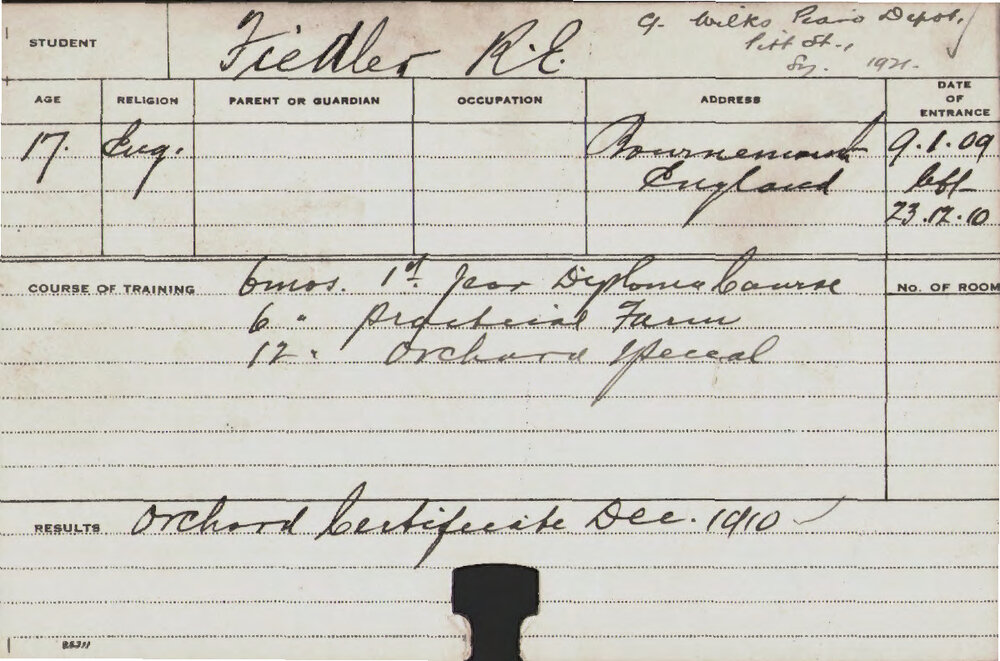 STUDENT Fiedler R.E. G. Wilks Piano Depot,
Pitt St.,
Sy. 1921.
AGE RELIGION PARENT OR GUARDIAN OCCUPATION ADDRESS DATE OF ENTRANCE
17. Eng. Bournemouth 9.1.09
England left
23.12.10
COURSE OF TRAINING 6 mos. 1st Year Diploma Course No. OF ROOM
6 " Practical Farm
12 " Orchard Special
RESULTS Orchard Certificate Dec. 1910